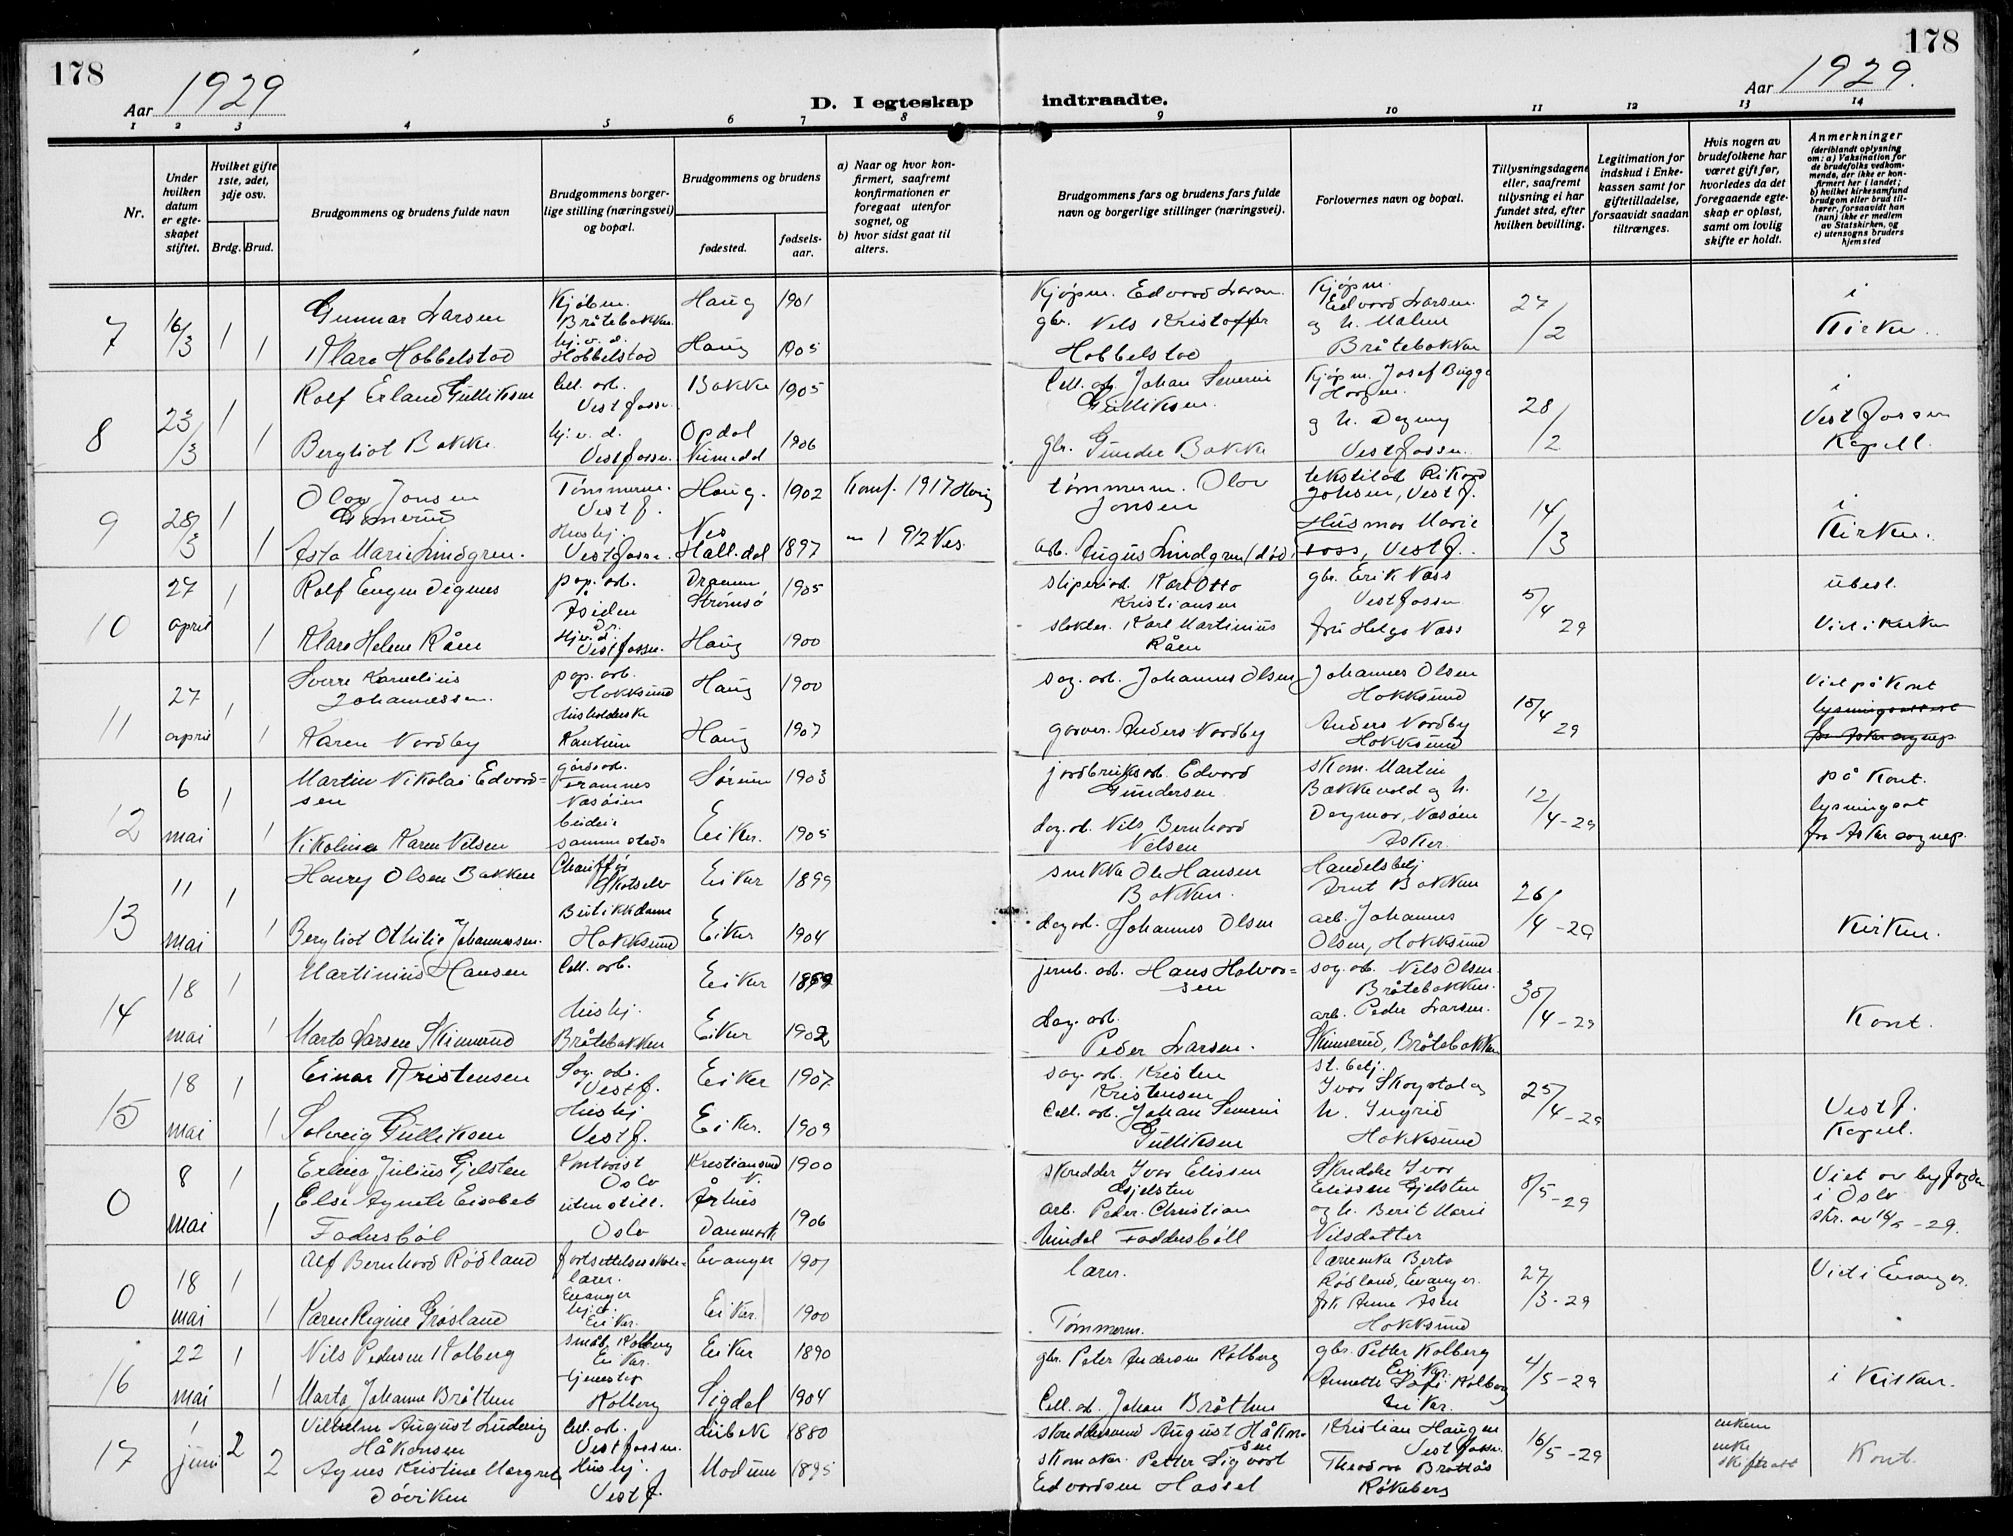 178
178
Aar 1929
D. I egteskap indtraadte.
Aar 1929.
1 2 3 4 5 6 7 8 9 10 11 12 13 14
Nr.
Under hvilken datum er egteskapet stiftet.
Hvilket gifte 1ste, 2det, 3dje osv.
Brdg. Brud.
Brudgommens og brudens fulde navn
Brudgommens borgerlige stilling (næringsvei) og bopæl.
Brudgommens og brudens
fødested.
fødselsaar.
a) Naar og hvor konfirmert, saafremt konfirmationen er foregaat utenfor sognet, og
b) hvor sidst gaat til alters.
Brudgommens fars og brudens fars fulde navn og borgerlige stillinger (næringsvei).
Forlovernes navn og bopæl.
Tillysningsdagene eller, saafremt tillysning ei har fundet sted, efter hvilken bevilling.
Legitimation for indskud i Enkekassen samt for giftetilladelse, forsaavidt saadan tiltrænges.
Hvis nogen av brudefolkene har været gift før, hvorledes da det foregaaende egteskap er opløst, samt om lovlig skifte er holdt.
Anmerkninger
(deriblandt oplysning om: a) Vaksination for de brudefolks vedkommende, der ikke er konfirmert her i landet;
b) hvilket kirkesamfund brudgom eller brud tilhører, forsaavidt han (hun) ikke er medlem av Statskirken, og
c) utensogns bruders hjemsted
7 16/3 1 Gunnar Larsen Kjøbm. Bråtebakken Haug 1901 Kjøpm. Edvard Larsen Kjøpm. Edvard Larsen 27/2 i Kirken.
1 Klara Hobbelstad hj.v.d. Hobbelstad Haug 1905 gbr. Nils Kristoffer Hobbelstad og h. Malene Bråtebakken
8 23/3 1 Rolf Erland Gulliksen Cell. arb. Vestfossen Bakke 1905 Cell. arb. Johan Severin Gulliksen Kjøpm. Josef Bugge 28/2 i Vestfossen Kapell.
1 Bergliot Bakke hj.v.d. Vestfossen Opdal Numedal 1906 gbr. Gunder Bakke og h. Dagny Vestfossen
9 28/3 1 Olav Jonsen Tømmerm. Vestf. Haug. 1902 Konf. 1917 Haug tømmerm. Olav Jonsen tekstilarb. Rikard Johsen, Vestf. 14/3 i Kirken.
1 Asta Marie Lindgren. Hushj. Vestfossen Nes Hall.dal 1897 " 1912 Nes. arb. August Lindgren (død) Husmor Marie Foss, Vestf.
10 27 april 1 Rolf Eugen Degnes pap. arb. Åsiden Dr. Dramm Strømsø 1905 sliperiarb. Karl Otto Kristiansen gbr. Erik Næss Vestfossen 5/4 29 ubesl.
1 Klara Helene Råen Hj.v.d. Vestfossen. Haug 1900 slakter. Karl Martinius Råen fru Helga Næss Viet i kirken
11 27 april 1 Sverre Kornelius Johannessen. pap. arb. Hokksund Haug 1900 sag. arb. Johannes Olsen Johannes Olsen Hokksund 15/4 29 Viet på Kont
1 Karen Nordby Husholderske Haug 1907 garver. Anders Nordby Anders Nordby Hokksund lysningsattest fra Asker sognep
12 6 mai 1 Martin Nikolai Edvardsen gårdsarb. Sørum 1903 jordbruksarb. Edvard Gundersen skom. Martin Bakkevold og h. 12/4-29 på Kont.
1 Nikoline Karen Nilsen samme sted Eiker. 1905 dag. arb. Nils Bernhard Nilsen Dagmar, Nesøen Asker. lysningsat fra Asker sognep.
13 11 mai 1 Henry Olsen Bakken Chauffør Skotselv Eiker 1899 snekker Ole Hansen Bakken. Handelsbetj. Arnt Bakken 26/4-29 Kirken.
1 Bergliot Othilie Johannessen. Butikkdame Hokksund Eiker 1904 dag arb. Johannes Olsen arb. Johannes Olsen, Hokksund
14 18 mai 1 Martinius Hansen Cell. arb. Eiker jernb. arb. Hans Halvorsen sag. arb. Nils Olsen. Bråtebakken. 30/4-29 Kont.
1 Marta Larsen Skinnerud Hushj. Bråtebakken Eiker 1902 dag. arb. Peder Larsen. arb. Peder Larsen. Skinnerud, Bråtebakken
15 18 mai 1 Einar Kristensen Sag. arb. Vestf. Eiker 1907 sag. arb. Kristen Kristensen st. betj. Ivar Skogstad og 25/4-29 Vestf. Kapell.
1 Solveig Gulliksen Hushj Vestf. Eiker. 1909 Cell. arb. Johan Severin Gulliksen h. Ingrid Hokksund
0 8 mai 1 Erling Julius Gjelsten Kontorist Oslo Kristiansund N. 1900 skredder Ivar Elissen Gjelsten Skredder Ivar Elissen Gjelsten 8/5-29 Viet av byfogden i Oslo
1 Else Agnete Elisabet Fadersböl uten still. Oslo Århus Danmark 1906 arb. Peder Christian og h. Berit Marie Nilsdatter skr. av 16/5-29.
0 18 mai 1 Alf Bernhard Rødland fortsettelsesskole- lærer. Evanger Evanger 1901 lærer. lærerenke Berta Rødland, Evanger. 27/3-29 Viet i Evanger.
1 Karen Regine Grøsland hj.d. Eiker. Eiker. 1900 Tømmerm. frk Anna Åsen Hokksund
16 22 mai 1 Nils Pedersen Kolberg småb. Kolberg Eiker. Eiker 1890 gbr. Peter Andersen Kolberg gbr. Petter Kolberg Eiker. 4/5-29 i Kirken.
1 Marta Johanne Bråtten tjenestep Kolberg Sigdal 1904 Cell. arb. Johan Bråthen Annette Sofi Kolberg Eiker.
17 1 juni 2 Vilhelm August Ludvig Håkonsen Cell. arb. Vestfossen. Lübek 1880 skreddersvend August Håkonsen Kristian Haugen Vestfossen. 16/5-29 enkem Kont.
2 Agnes Kristine Margrete Døviken Hushj. Vestf. Modum 1895 skomaker. Petter Sigvart Edvardsen Hassel Theodora Brøttås Røkeberg enke skifteatt